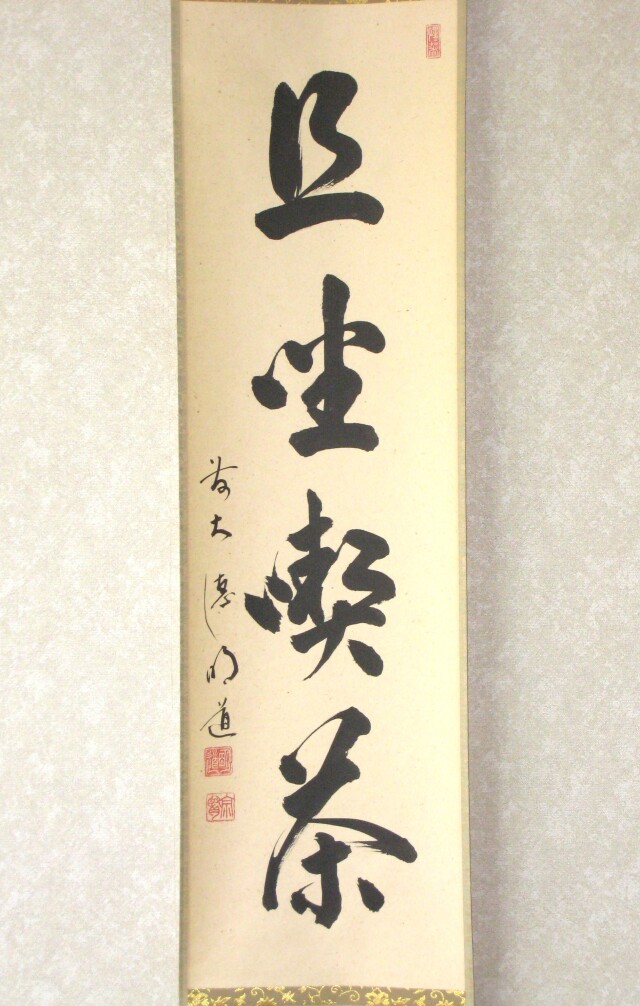 且坐喫茶
前大徳明道